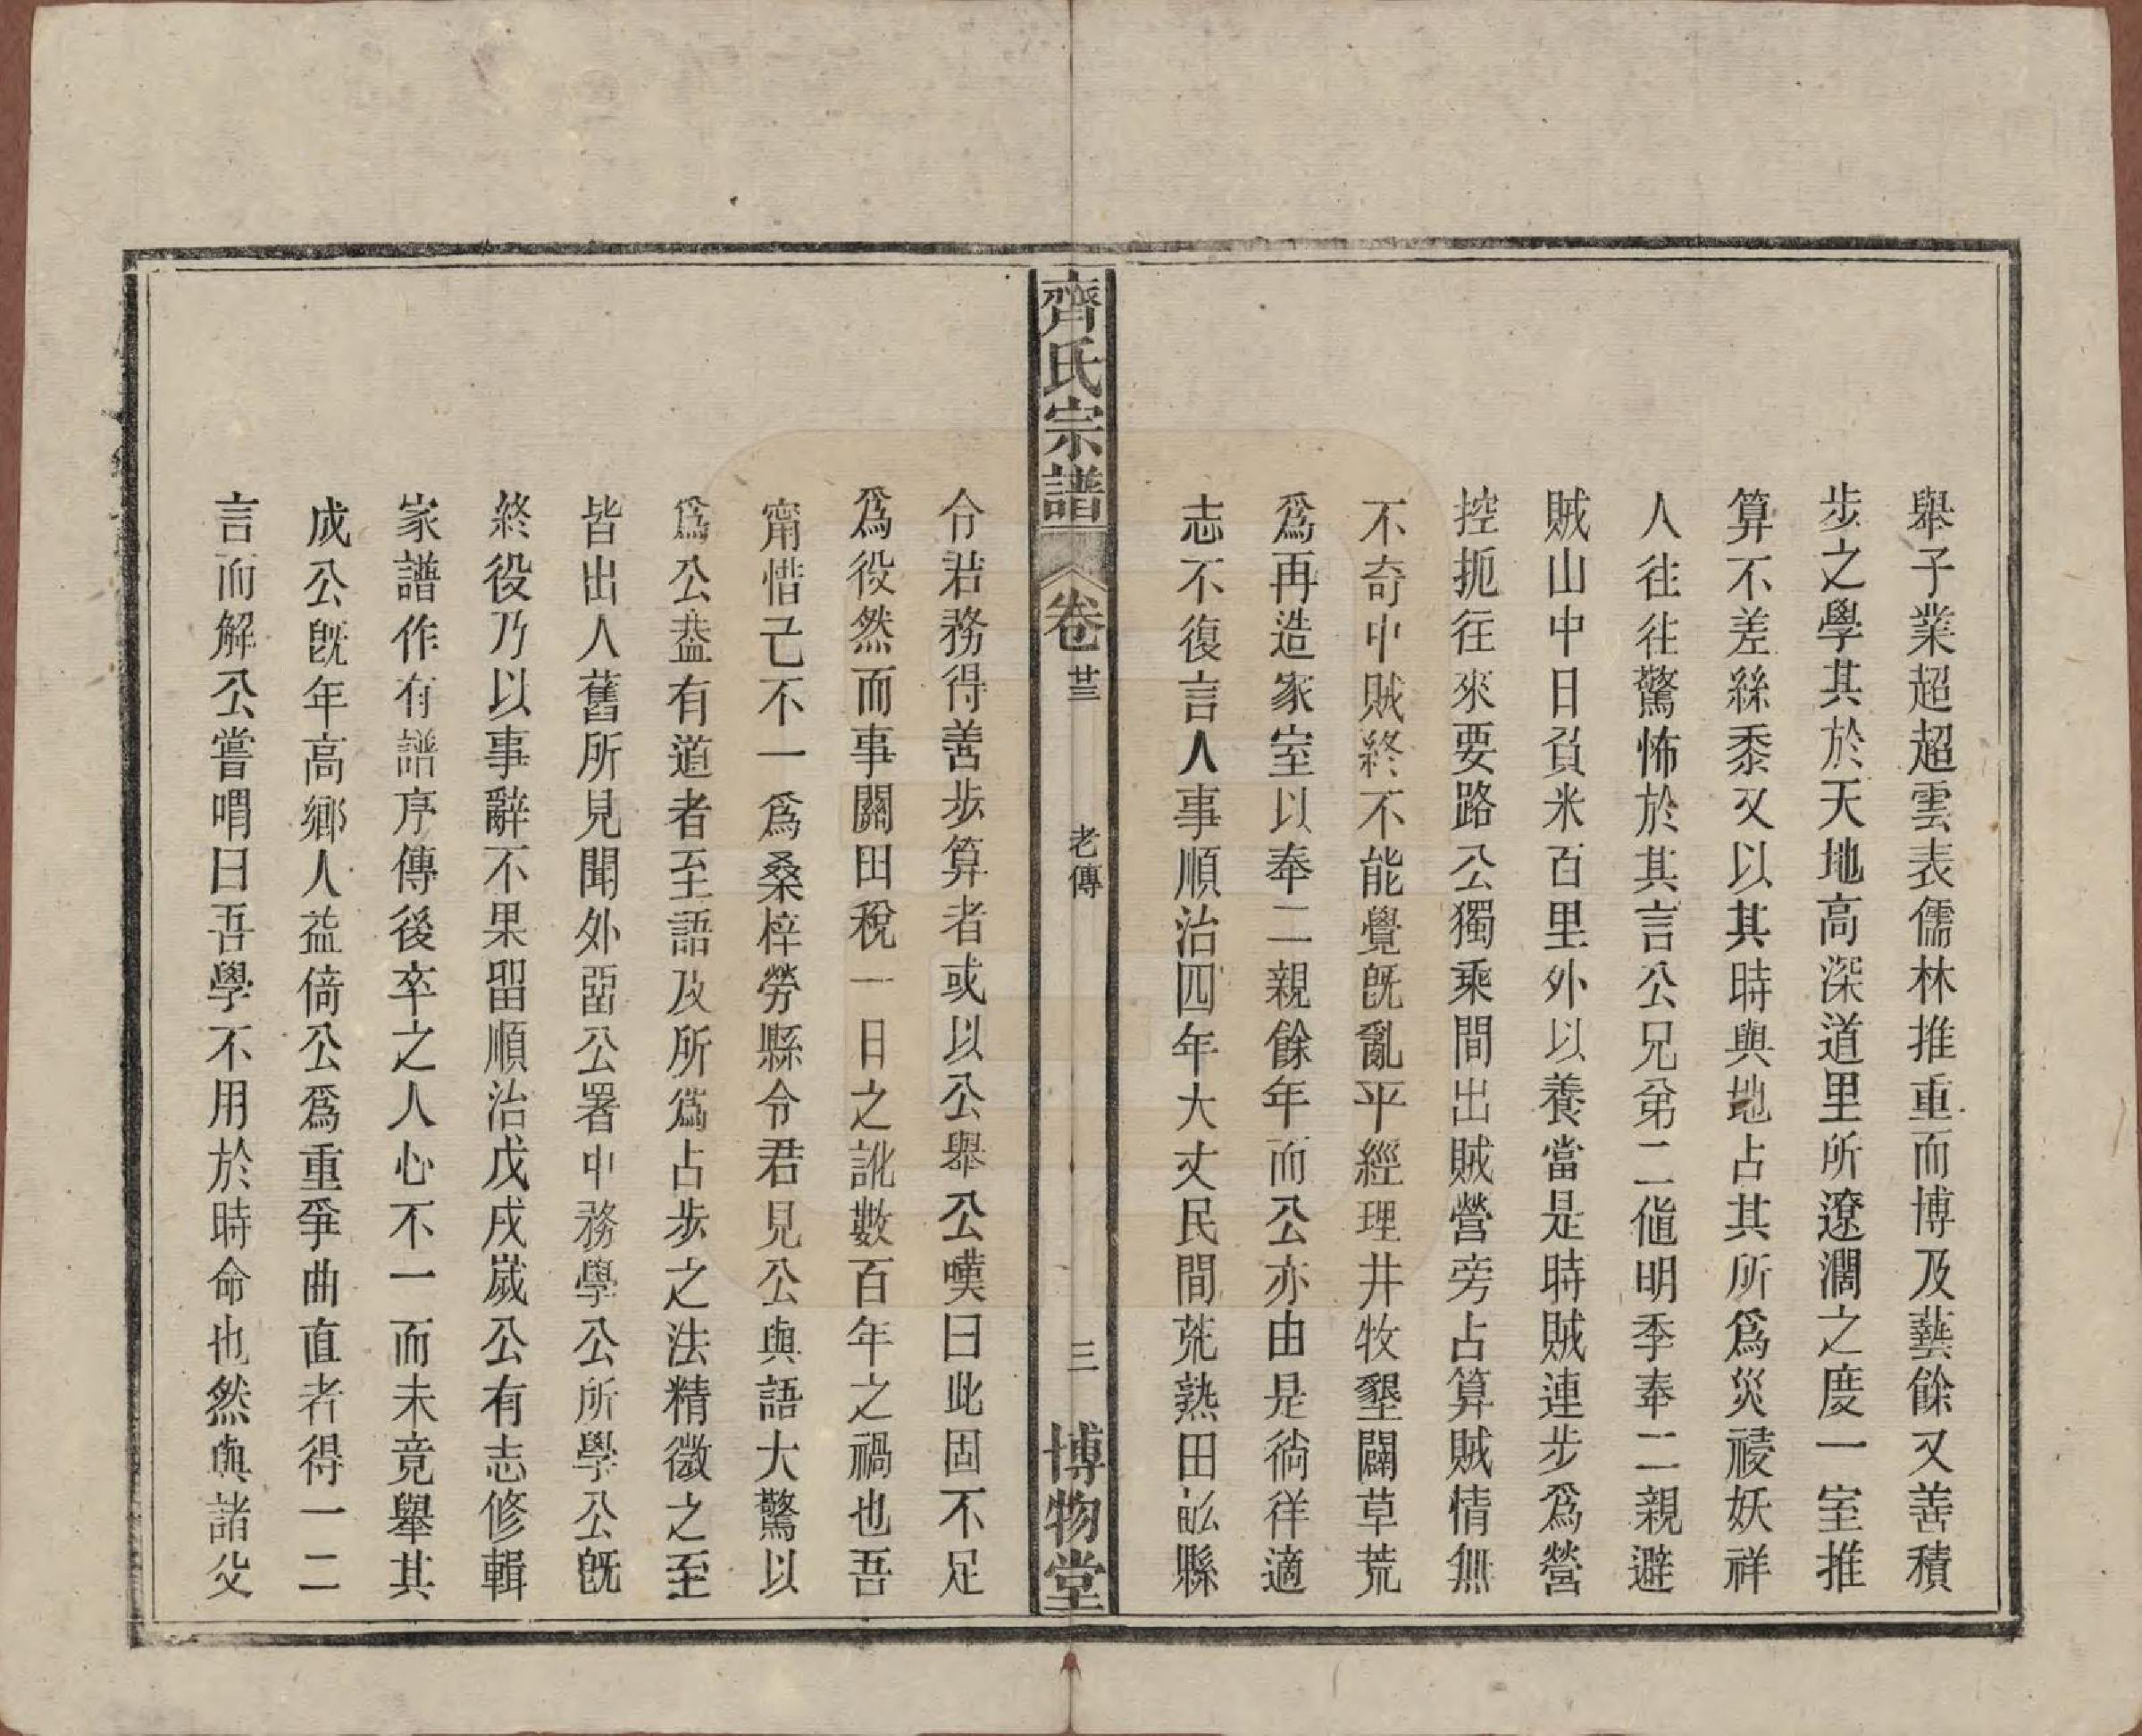 舉子業超超雲表儒林推重而博及藝餘又善積
步之學其於天地高深道里所遼濶之度一室推
算不差絲黍又以其時與地占其所爲災祲妖祥
人往往驚怖於其言公兄弟二傕明季奉二親避
賊山中日負米百里外以養當是時賊連步爲營
控扼往來要路公獨乘間出賊營旁占算賊情無
不奇中賊終不能覺旣亂平經理井牧墾闢草荒
爲再造家室以奉二親餘年而公亦由是徜徉適
志不復言人事順治四年大丈民間荒熟田畝縣
齊氏宗譜
卷廿三
老傳
三
博物堂
令君務得善步算者或以公舉公嘆曰此固不足
爲役然而事關田稅一日之訛數百年之禍也吾
甯惜己不一爲桑梓勞縣令君見公與語大驚以
爲公葢有道者至語及所爲占步之法精微之至
皆出人舊所見聞外畱公署中務學公所學公旣
終役乃以事辭不果畱順治戊戌嵗公有志修輯
家譜作有譜序傳後卒之人心不一而未竟舉其
成公旣年高鄉人益倚公爲重爭曲直者得一二
言而解公嘗喟曰吾學不用於時命也然與諸父